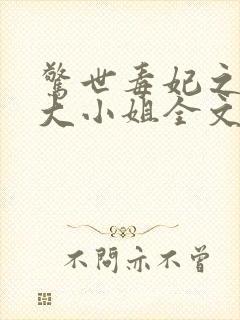 驚世毒妃之
大小姐全文
不問亦不曾